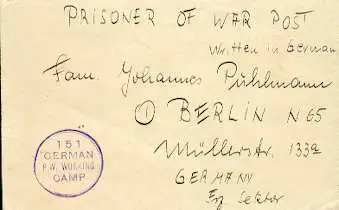 PRISONER OF WAR POST
Written in German
Fam. Johannes Pühlmann
① BERLIN N65
Müllerstr. 133a
GERMANY
151
GERMAN
P.W. WORKING
CAMP